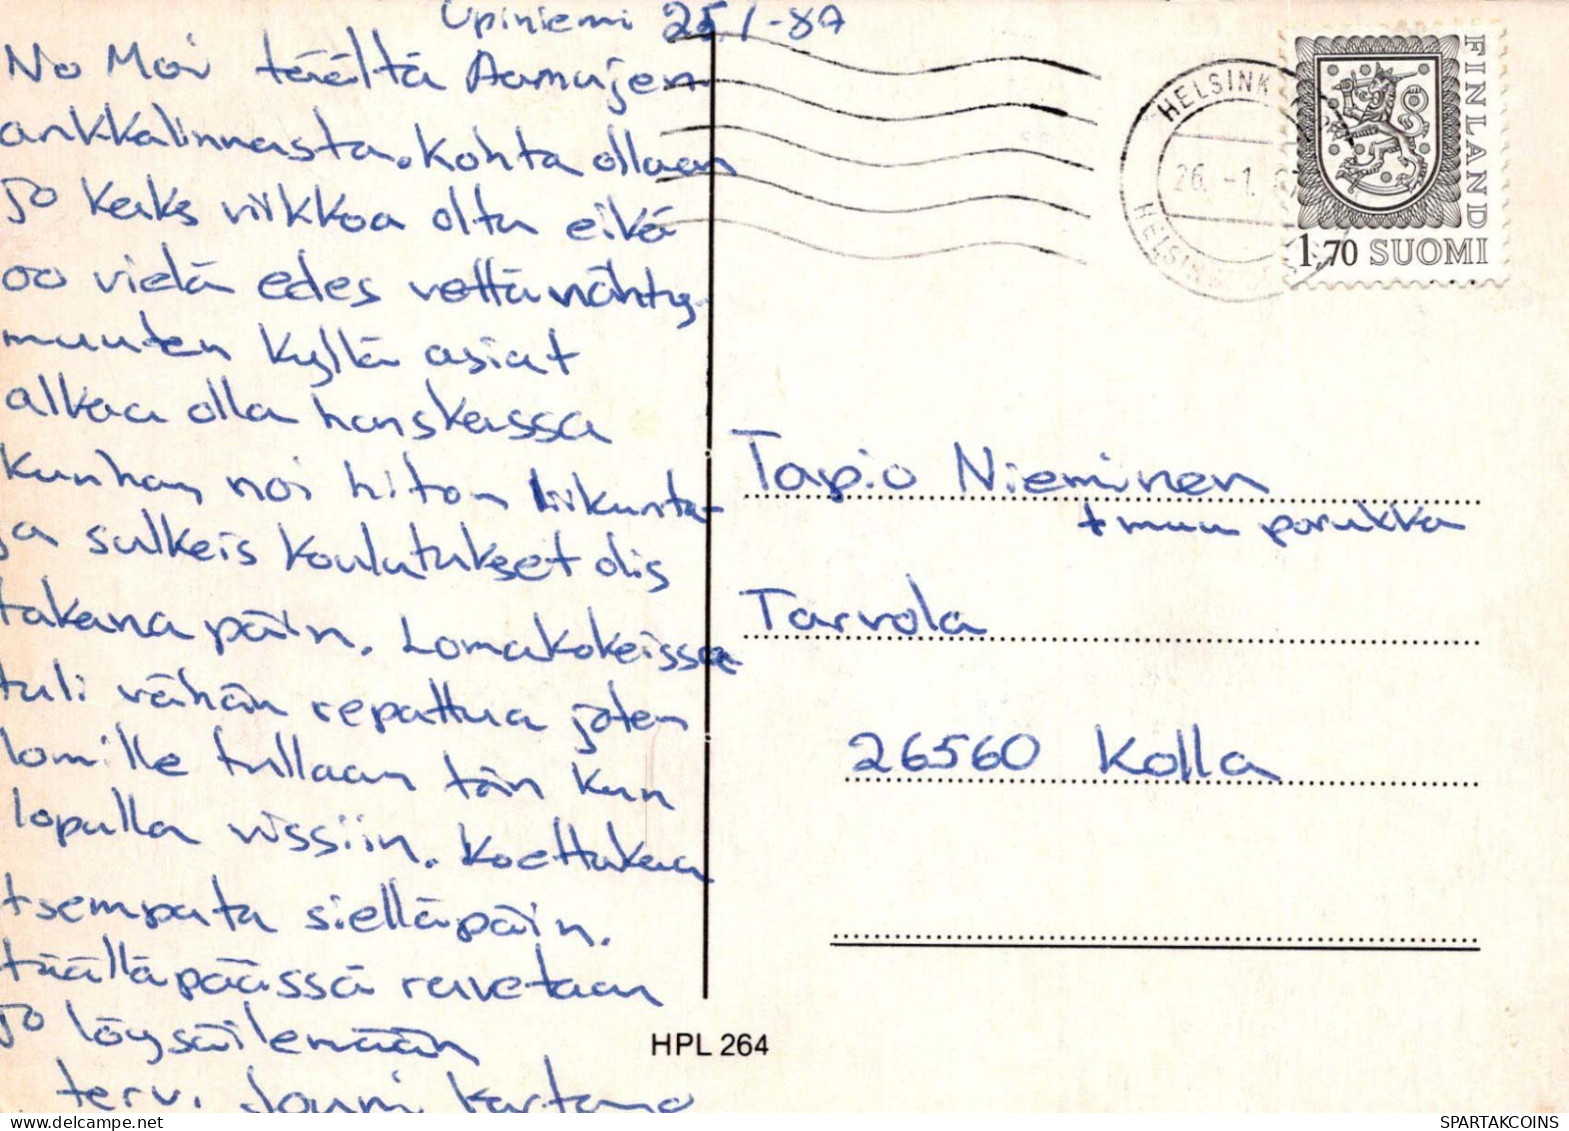 Upiniemi 25.1-87
No Moi täältä Aamujen
ankkalinnasta. Kohta ollaan
jo kaks viikkoa oltu eikä
oo vielä edes vettä nähty.
muuten kyllä asiat
alkaa olla hanskassa
kunhan noi hiton liikunta-
ja sulkeis koulutukset olis
takana päin. Lomakokeissa
tuli vähän repattua joten
lomille tullaan tän kun
lopulla vissiin. Koettakaa
tsempata sielläpäin.
täälläpäässä ruvetaan
jo löysäilemään
terv. Jouni
HELSINK
26.-1.
HELSIN
FINLAND
1,70 SUOMI
Tapio Nieminen
+ muu porukka
Tarvola
26560 Kolla
HPL 264
SPARTAKCOINS
www.spartakcoins.com